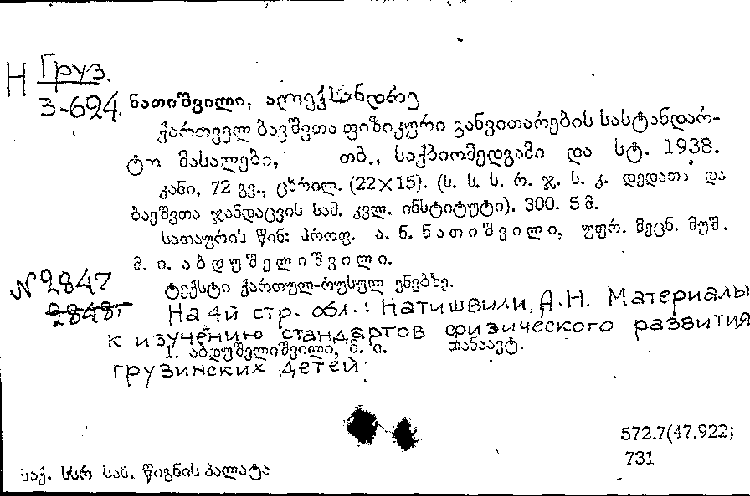 Н Груз.
3-694.
ნათიშვილი, ალექსანდრე
ქართველ ბავშვთა ფიზიკური განვითარების სასტანდარ-
ტო მასალები, თბ., საქბიომედგამი და სტ. 1938.
კანი, 72 გვ., ცხრილ. (22X15). (ს. ს. ს. რ. ჯ. ს. კ. დედათა და
ბავშვთა ჯანდაცვის სამ. კვლ. ინსტიტუტი). 300. 5 მ.
სათაურის წინ: პროფ. ა. ნ. ნათიშვილი, უფრ. მეცნ. მუშ.
მ. ი. აბდუშელიშვილი.
№ 2847
ტექსტი ქართულ-რუსულ ენებზე.
2848
На 4й стр. обл.: Натишвили, А.Н. Материалы
к изучению стандартов физического развития
1. აბდუშელიშვილი, მ. ი. თანაავტ.
грузинских детей.
572.7(47.922)
731
საქ. სსრ სახ. წიგნის პალატა